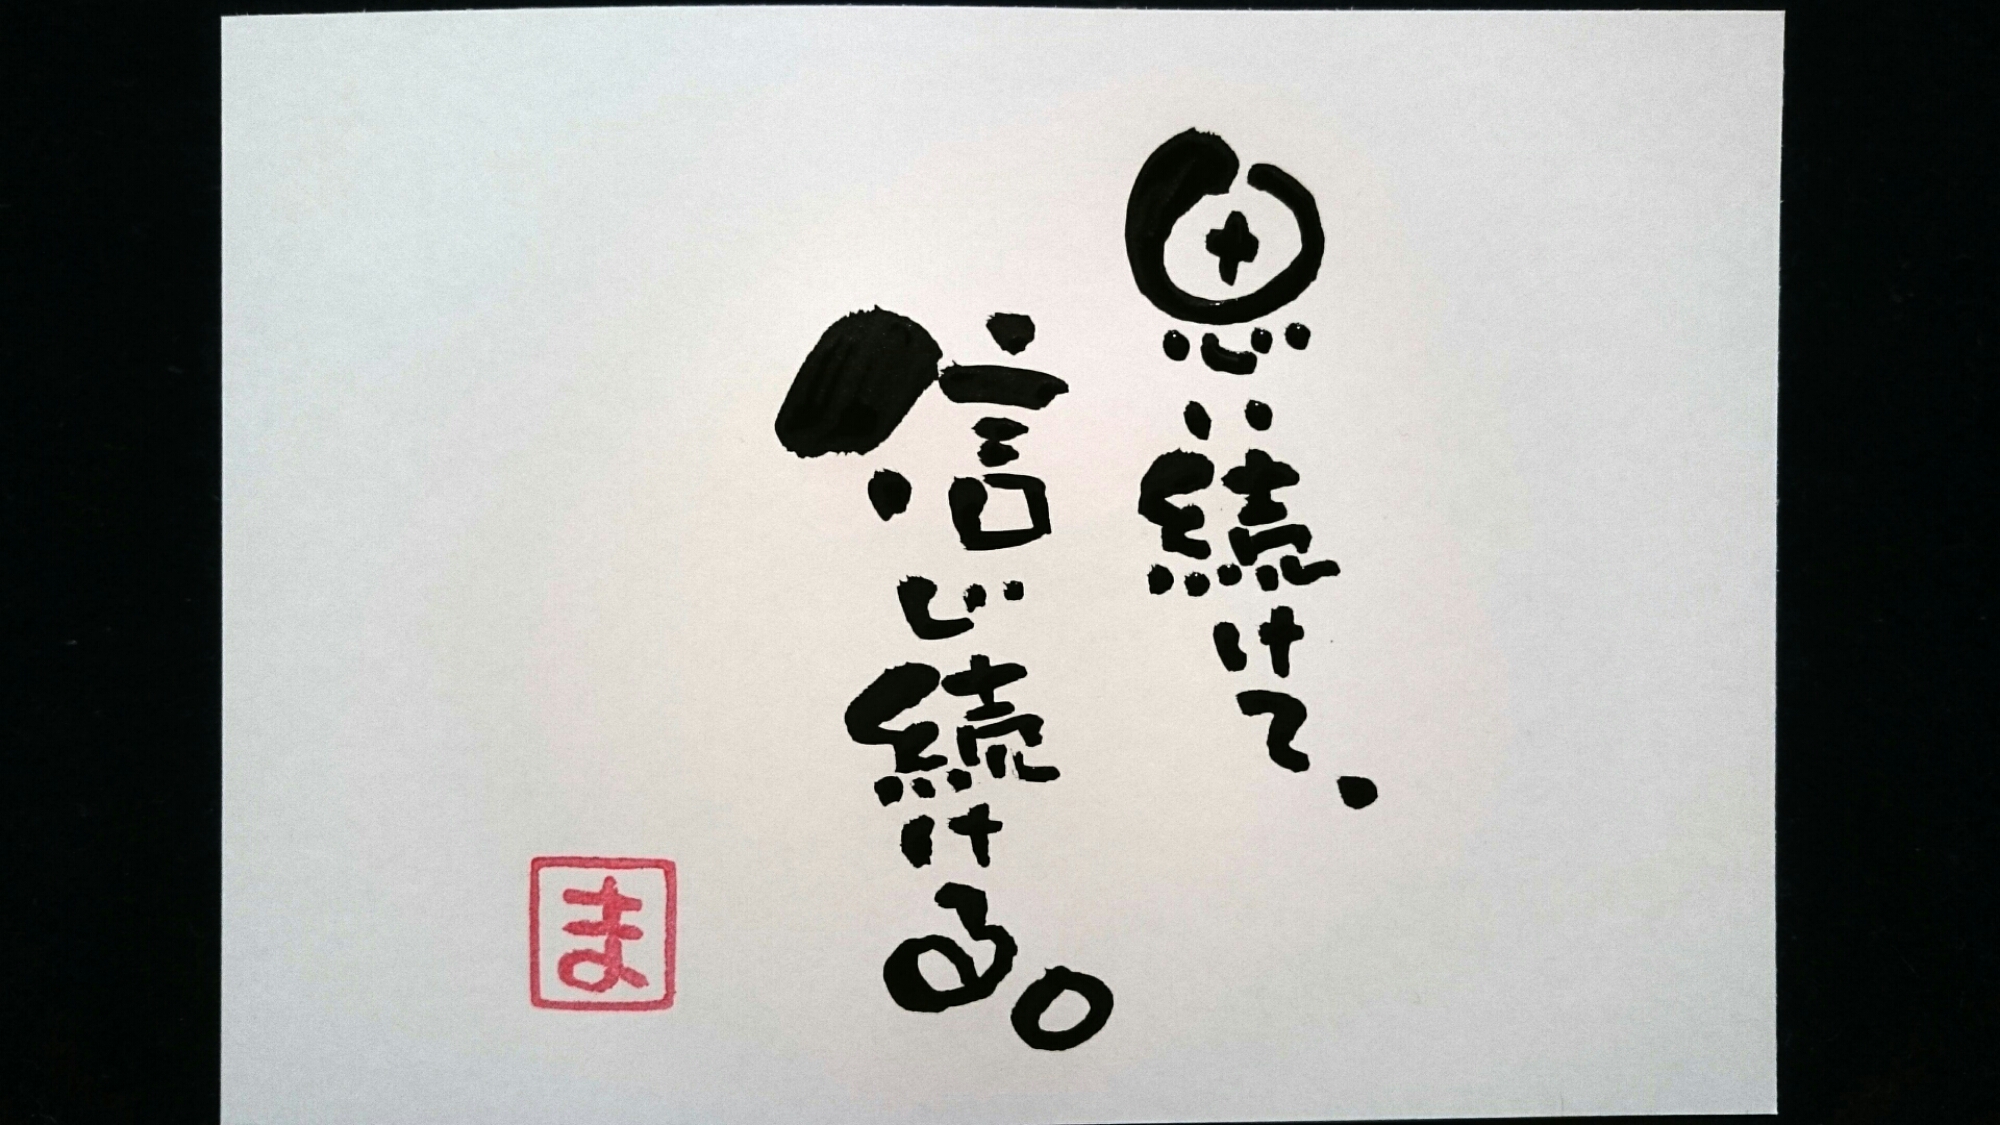 思い続けて、
信じ続ける。
ま